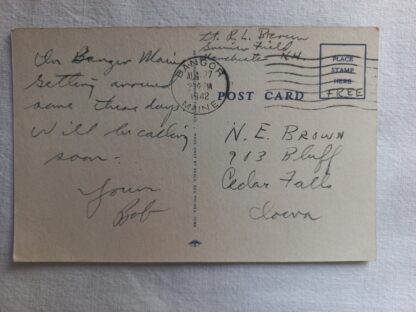 Lt. R. L. Brown
Grenier Field
Manchester N.H.
In Bangor Maine
Getting around
some these days
Will be calling
soon.
Yours
Bob
BANGOR
AUG 27
PM
1942
MAINE
POST CARD
PLACE
STAMP
HERE
FREE
N. E. Brown
913 Bluff
Cedar Falls
Iowa